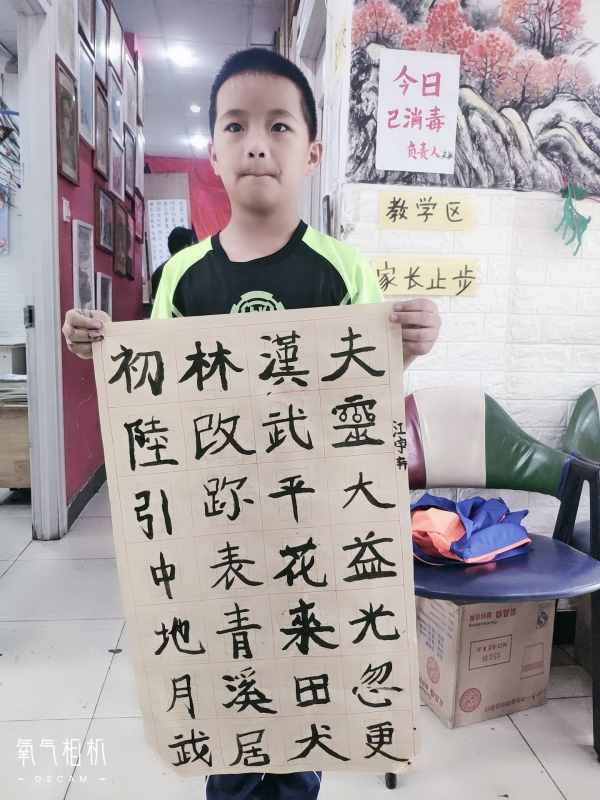 今日
己消毒
负责人
教学区
家长止步
夫靈大益光忽更
漢武平花来田犬
林改跡表青溪居
初陸引中地月武
氧气相机
O2CAM